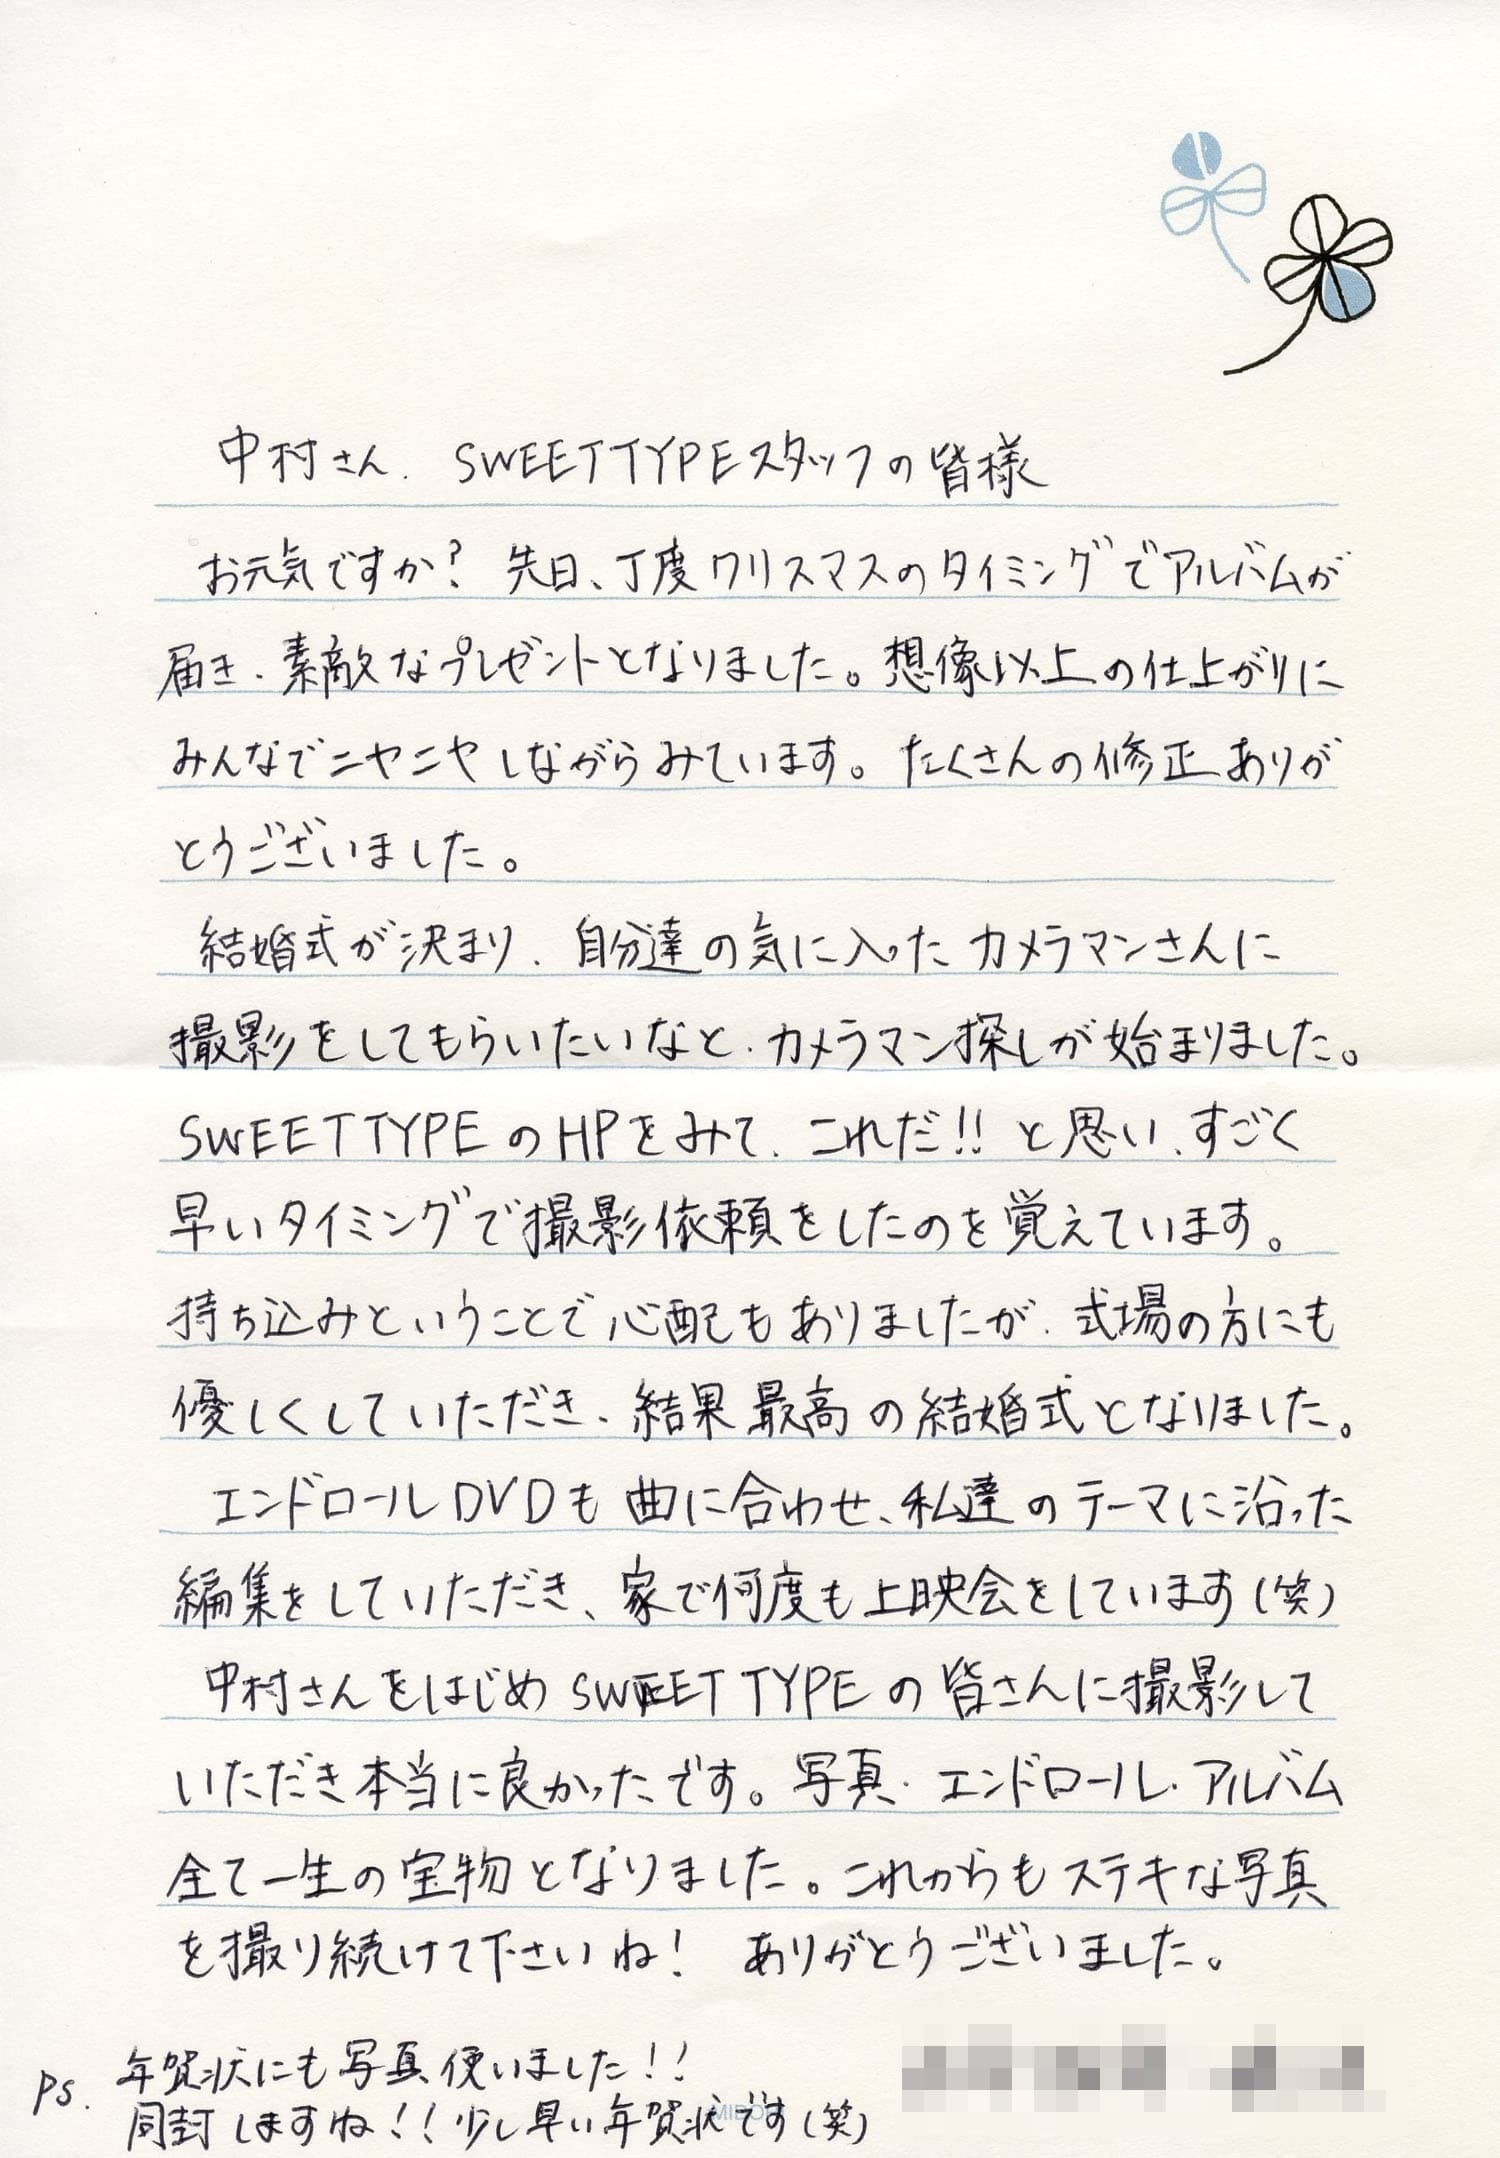 中村さん、SWEETTYPEスタッフの皆様
お元気ですか？ 先日、丁度クリスマスのタイミングでアルバムが
届き、素敵なプレゼントとなりました。想像以上の仕上がりに
みんなでニヤニヤしながらみています。たくさんの修正ありが
とうございました。
結婚式が決まり、自分達の気に入ったカメラマンさんに
撮影をしてもらいたいなと、カメラマン探しが始まりました。
SWEETTYPEのHPをみて、これだ!!と思い、すごく
早いタイミングで撮影依頼をしたのを覚えています。
持ち込みということで心配もありましたが、式場の方にも
優しくしていただき、結果最高の結婚式となりました。
エンドロールDVDも曲に合わせ、私達のテーマに沿った
編集をしていただき、家で何度も上映会をしています(笑)
中村さんをはじめSWEETTYPEの皆さんに撮影して
いただき本当に良かったです。写真・エンドロール・アルバム
全て一生の宝物となりました。これからもステキな写真
を撮り続けて下さいね！ ありがとうございました。
Ps. 年賀状にも写真使いました!!
同封しますね!!少し早い年賀状です(笑)